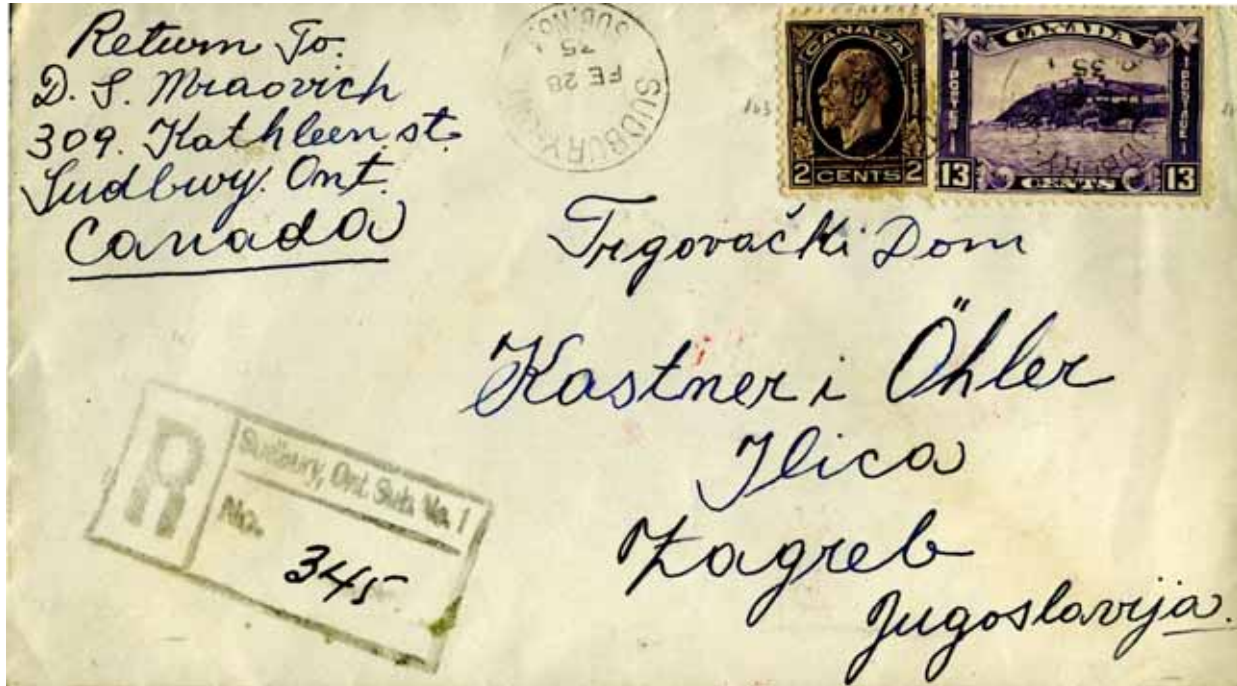 Return To:
D. S. Mraovich
309. Kathleen st.
Sudbury. Ont.
Canada
SUDBURY-ONT.
FE 28
35
SUB. NO. 1
CANADA
2 CENTS 2
CANADA
POSTAGE
POSTES
35
13 CENTS 13
Trgovački Dom
Kastner i Öhler
Ilica
Zagreb
Jugoslavija.
R
Sudbury, Ont. Sub. No. 1
No.
345